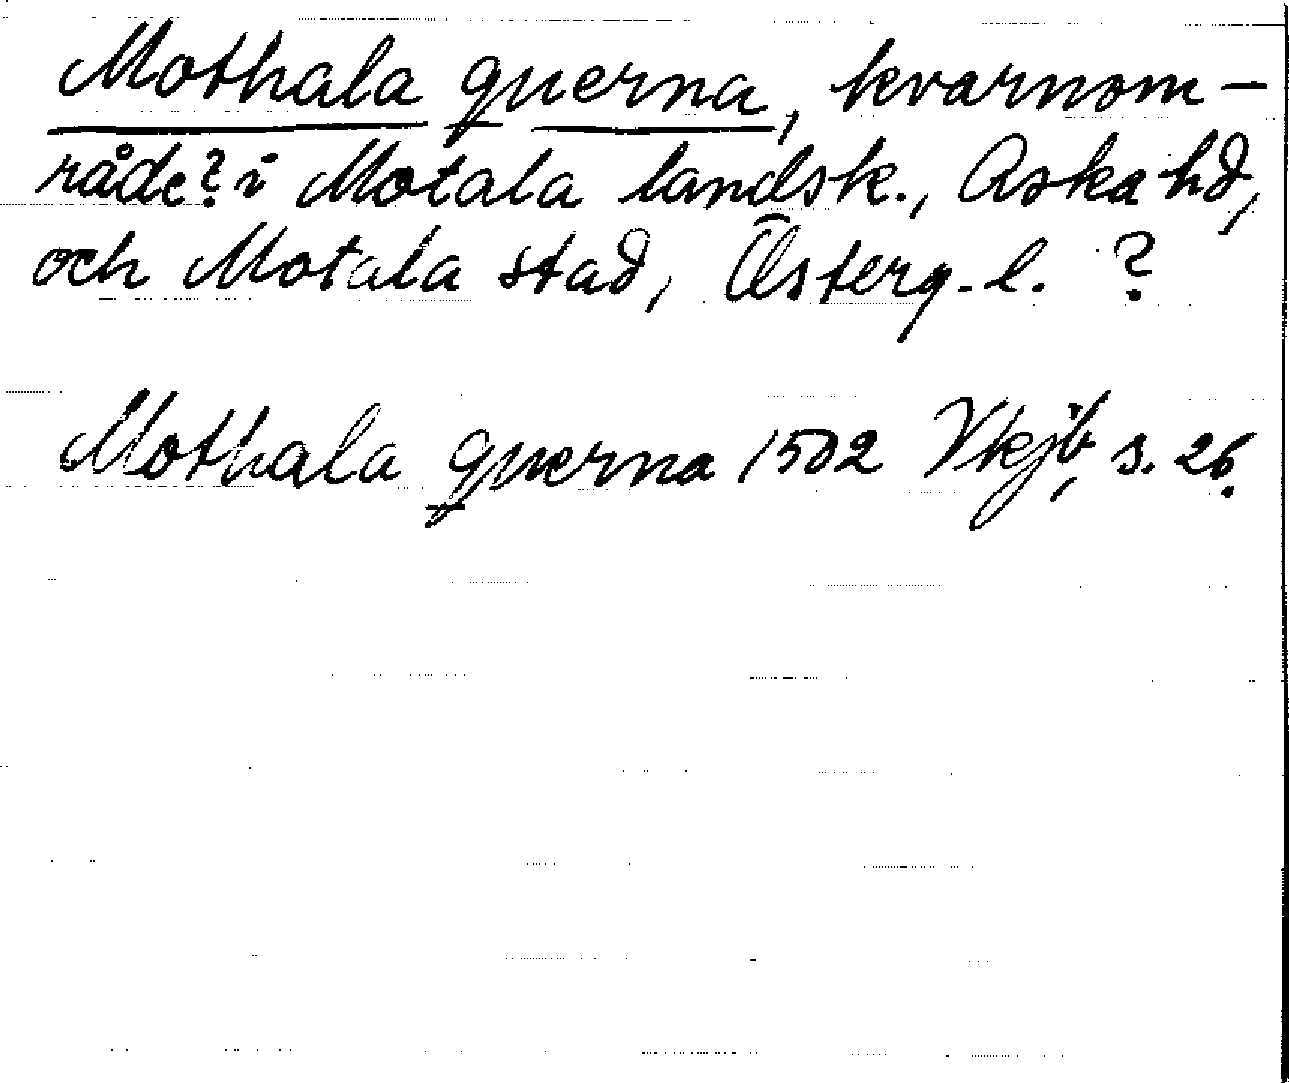 Mothala querna, kvarnom-
råde? i Motala landsk., Aska hd,
och Motala stad, Österg. l. ?
Mothala querna 1502 Vkjb, s. 26.